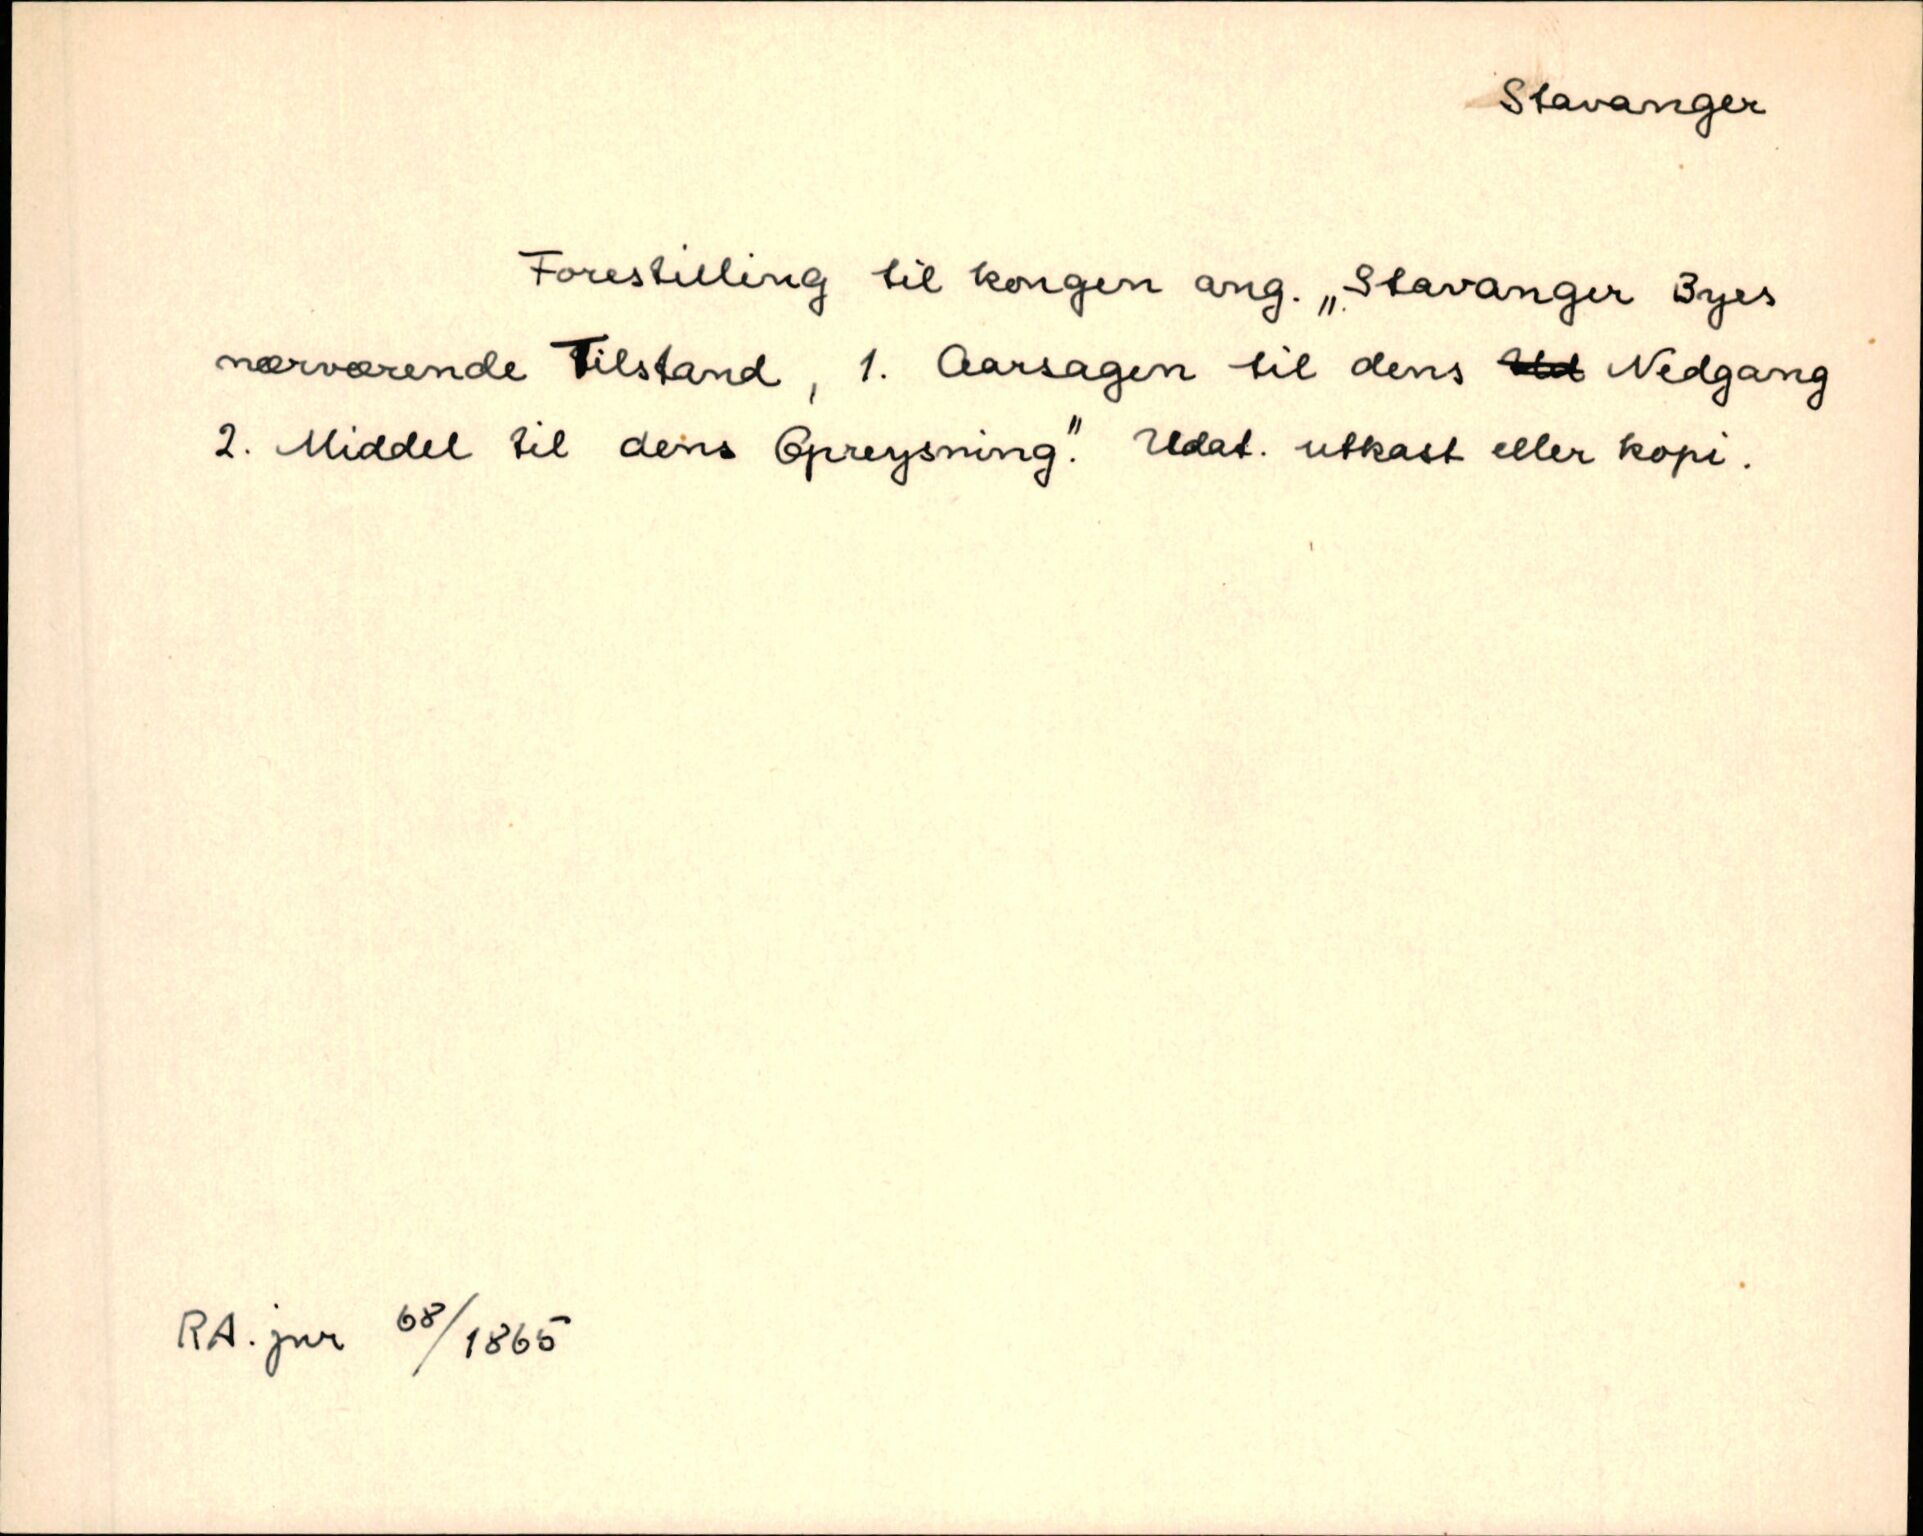 Stavanger
Forestilling til kongen ang. „Stavanger Byes
nærværende Tilstand, 1. Aarsagen til dens Nedgang
2. Middel til dens Opreysning". Udat. utkast eller kopi.
RA. jnr 68/1865